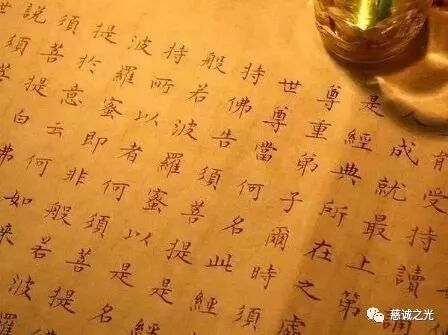 能受持讀誦
人成就最上第
是經典所在之處
尊重弟子爾時須
世尊當何名此經
持佛告須菩提是
般若波羅蜜以是名
持所以者何須菩提
波羅蜜即非般若波
提於意云何如來
須菩提白佛
說須菩
世
慈诚之光